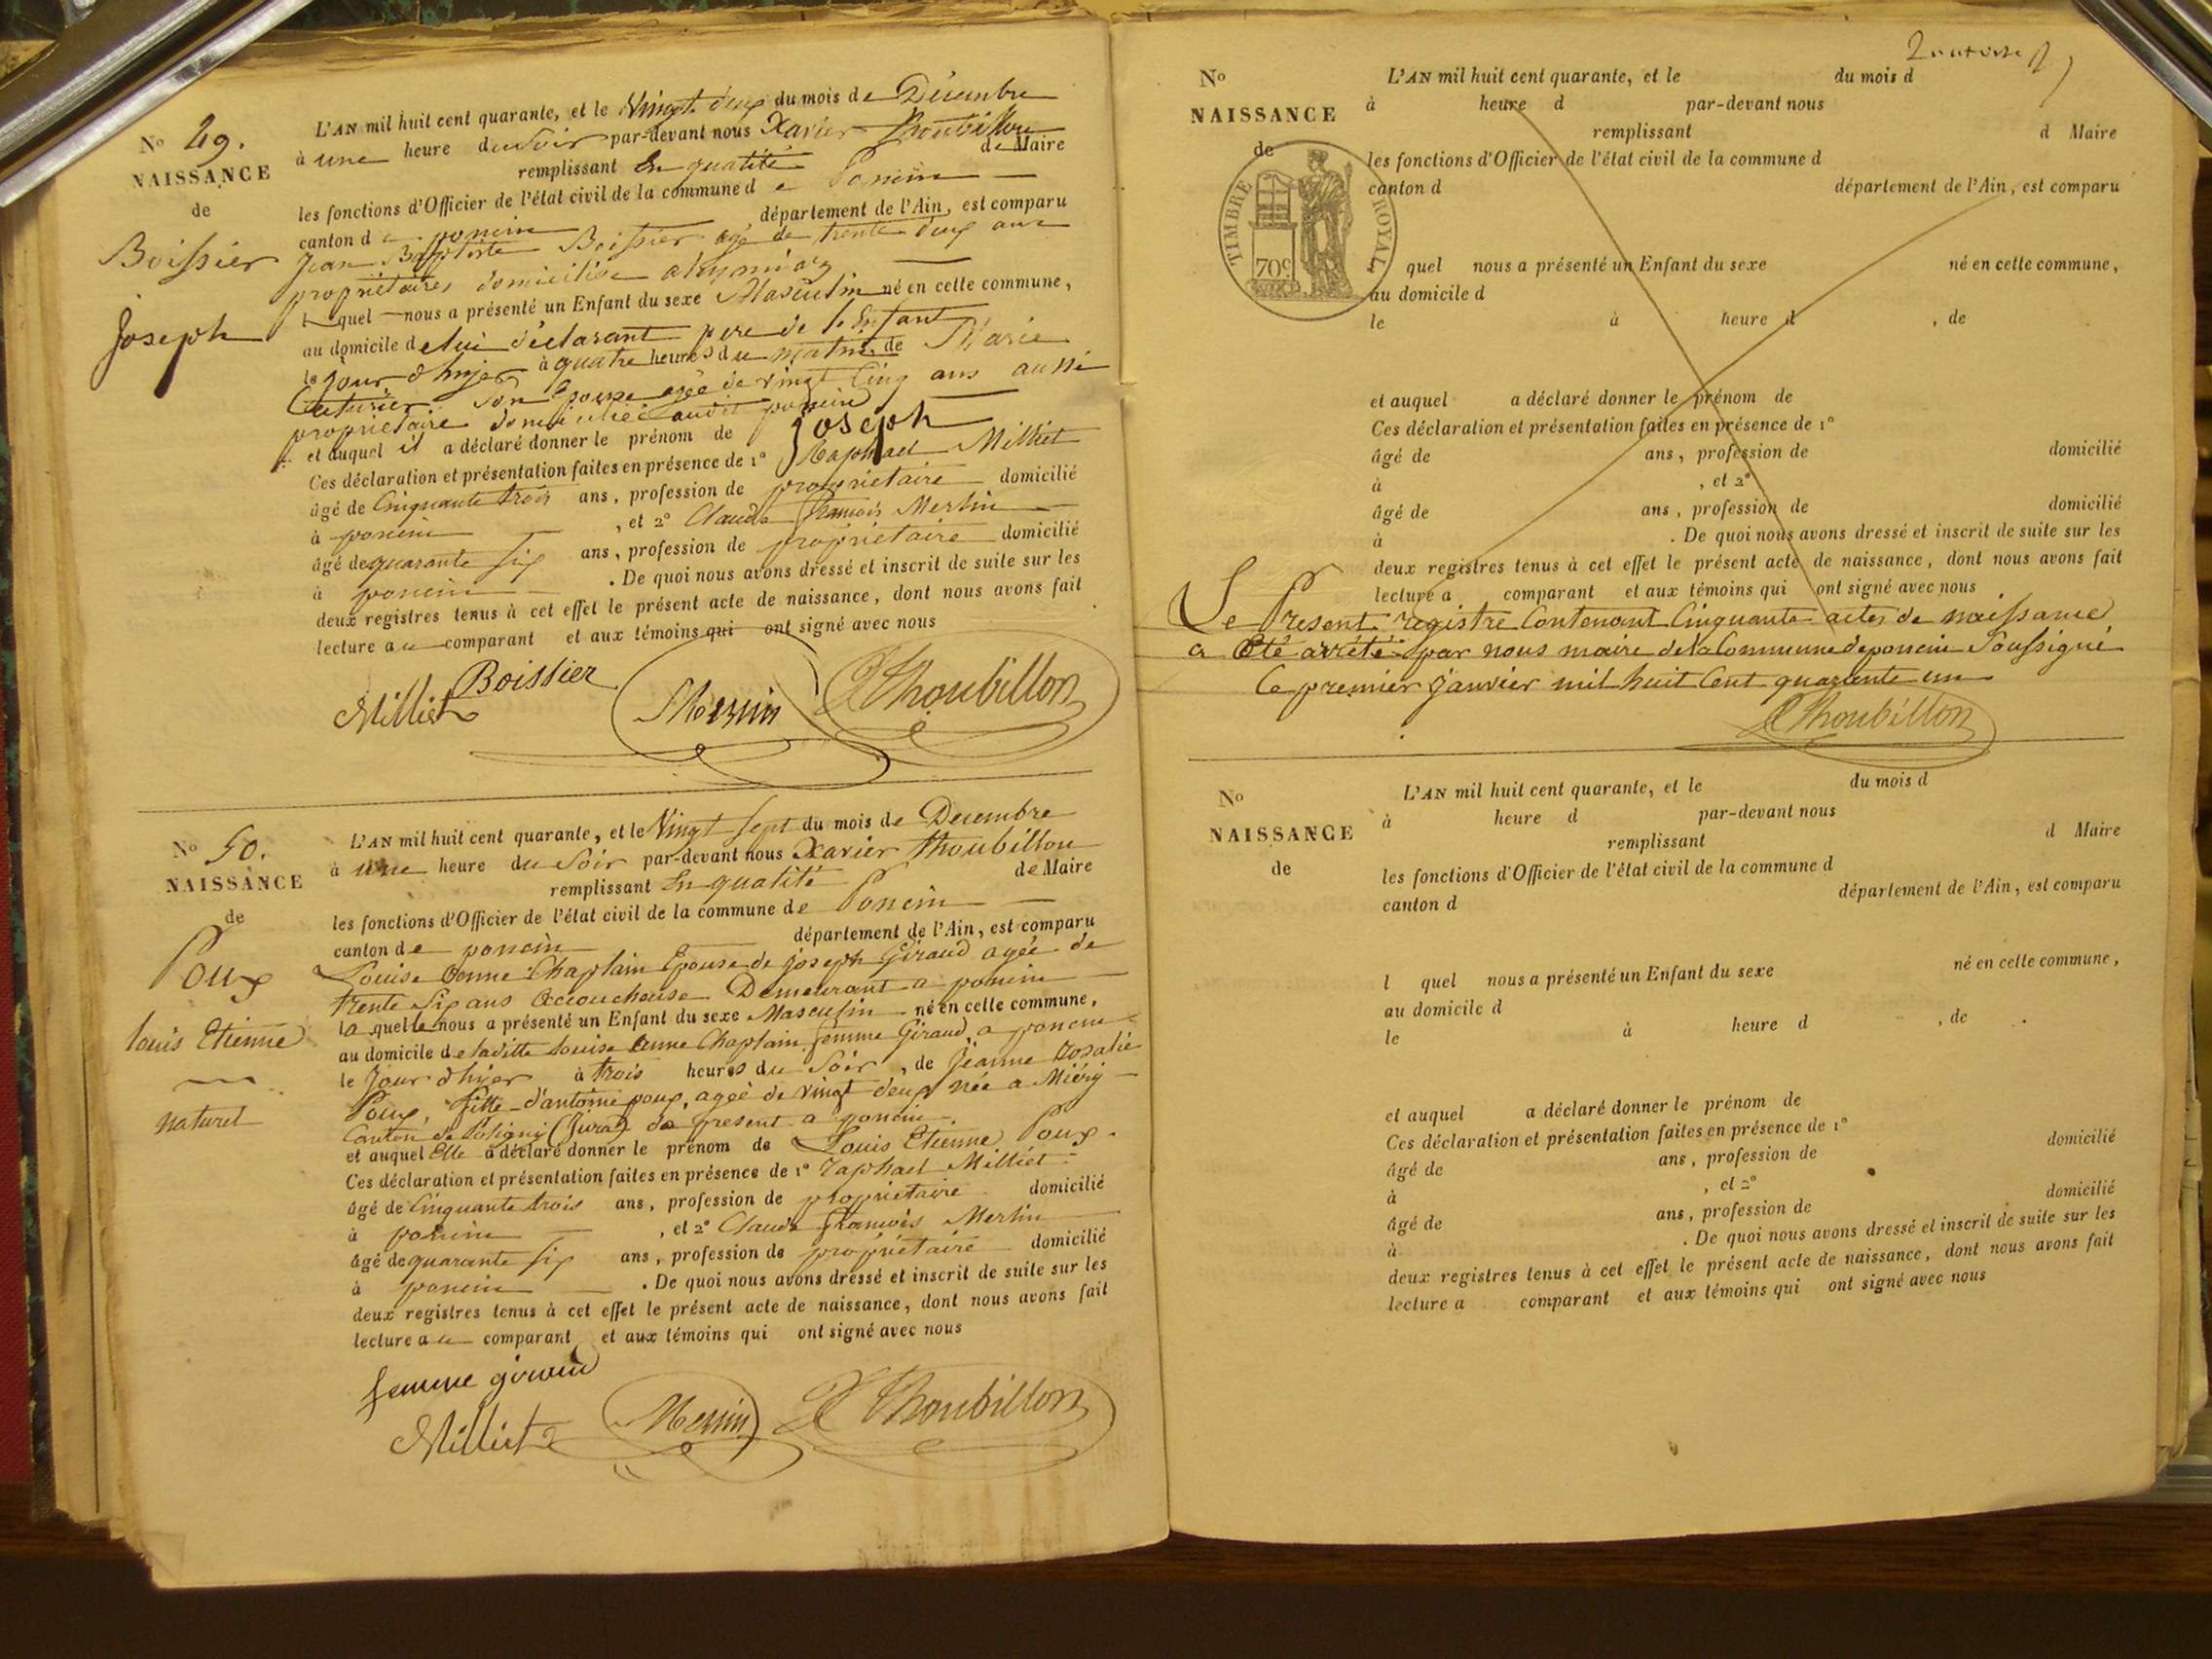 N° 49.
NAISSANCE
de
Boissier
Joseph
L'AN mil huit cent quarante, et le Vingt deux du mois de Décembre
à une heure du Soir par-devant nous Xavier Thoubillon
remplissant En qualité de Maire
les fonctions d'Officier de l'état civil de la commune de Poncin
canton de poncin département de l'Ain, est comparu
Jean Baptiste Boissier agé de trente deux ans
propriétaire domicilié
lequel nous a présenté un Enfant du sexe Masculin né en cette commune,
au domicile de lui déclarant père de l'Enfant
le Jour d'hyer à quatre heures du matin, de Marie
son Epouse agée de vingt Cinq ans aussi
propriétaire domiciliée audit poncin
et auquel il a déclaré donner le prénom de Joseph
Ces déclaration et présentation faites en présence de 1° Raphael Milliet
âgé de Cinquante trois ans, profession de propriétaire domicilié
à poncin , et 2° Claude François Merlin
âgé de quarante six ans, profession de propriétaire domicilié
à poncin . De quoi nous avons dressé et inscrit de suite sur les
deux registres tenus à cet effet le présent acte de naissance, dont nous avons fait
lecture au comparant et aux témoins qui ont signé avec nous
Boissier
Milliet Merlin Thoubillon
N° 50.
NAISSANCE
de
Poux
louis Etienne
naturel
L'AN mil huit cent quarante, et le Vingt sept du mois de Decembre
à une heure du Soir par-devant nous Xavier Thoubillon
remplissant En qualité de Maire
les fonctions d'Officier de l'état civil de la commune de Poncin
canton de poncin département de l'Ain, est comparu
Louise Anne Chaplain Epouse de joseph Giraud agée de
trente six ans Accoucheuse Demeurant a poncin
laquelle nous a présenté un Enfant du sexe Masculin né en cette commune,
au domicile de ladite Louise Anne Chaplain femme Giraud, a poncin
le Jour d'hier à trois heures du Soir, de Jeanne rosalie
Poux, fille d'antoine poux, agée de vingt deux née a Miéry
Canton de Poligni (Jura) de présent a poncin
et auquel Elle a déclaré donner le prénom de Louis Etienne Poux.
Ces déclaration et présentation faites en présence de 1° raphael Milliet
âgé de Cinquante trois ans, profession de propriétaire domicilié
à poncin , et 2° Claude François Merlin
âgé de quarante six ans, profession de propriétaire domicilié
à poncin . De quoi nous avons dressé et inscrit de suite sur les
deux registres tenus à cet effet le présent acte de naissance, dont nous avons fait
lecture au comparant et aux témoins qui ont signé avec nous
femme giraud
Milliet Merlin Thoubillon
N°
NAISSANCE
de
TIMBRE ROYAL
70c
L'AN mil huit cent quarante, et le du mois d
à heure d par-devant nous
remplissant d Maire
les fonctions d'Officier de l'état civil de la commune d
canton d département de l'Ain, est comparu
quel nous a présenté un Enfant du sexe né en cette commune,
au domicile d
le à heure d , de
et auquel a déclaré donner le prénom de
Ces déclaration et présentation faites en présence de 1°
âgé de ans, profession de domicilié
à , et 2°
âgé de ans, profession de domicilié
à . De quoi nous avons dressé et inscrit de suite sur les
deux registres tenus à cet effet le présent acte de naissance, dont nous avons fait
lecture a comparant et aux témoins qui ont signé avec nous
Le Present registre Contenant Cinquante actes de naissance
a Eté arrêté par nous maire de la Commune de poncin Soussigné
le premier janvier mil huit Cent quarante un
Thoubillon
N°
NAISSANCE
de
L'AN mil huit cent quarante, et le du mois d
à heure d par-devant nous
remplissant d Maire
les fonctions d'Officier de l'état civil de la commune d
canton d département de l'Ain, est comparu
l quel nous a présenté un Enfant du sexe né en cette commune,
au domicile d
le à heure d , de
et auquel a déclaré donner le prénom de
Ces déclaration et présentation faites en présence de 1°
âgé de ans, profession de domicilié
à , et 2°
âgé de ans, profession de domicilié
à . De quoi nous avons dressé et inscrit de suite sur les
deux registres tenus à cet effet le présent acte de naissance, dont nous avons fait
lecture a comparant et aux témoins qui ont signé avec nous